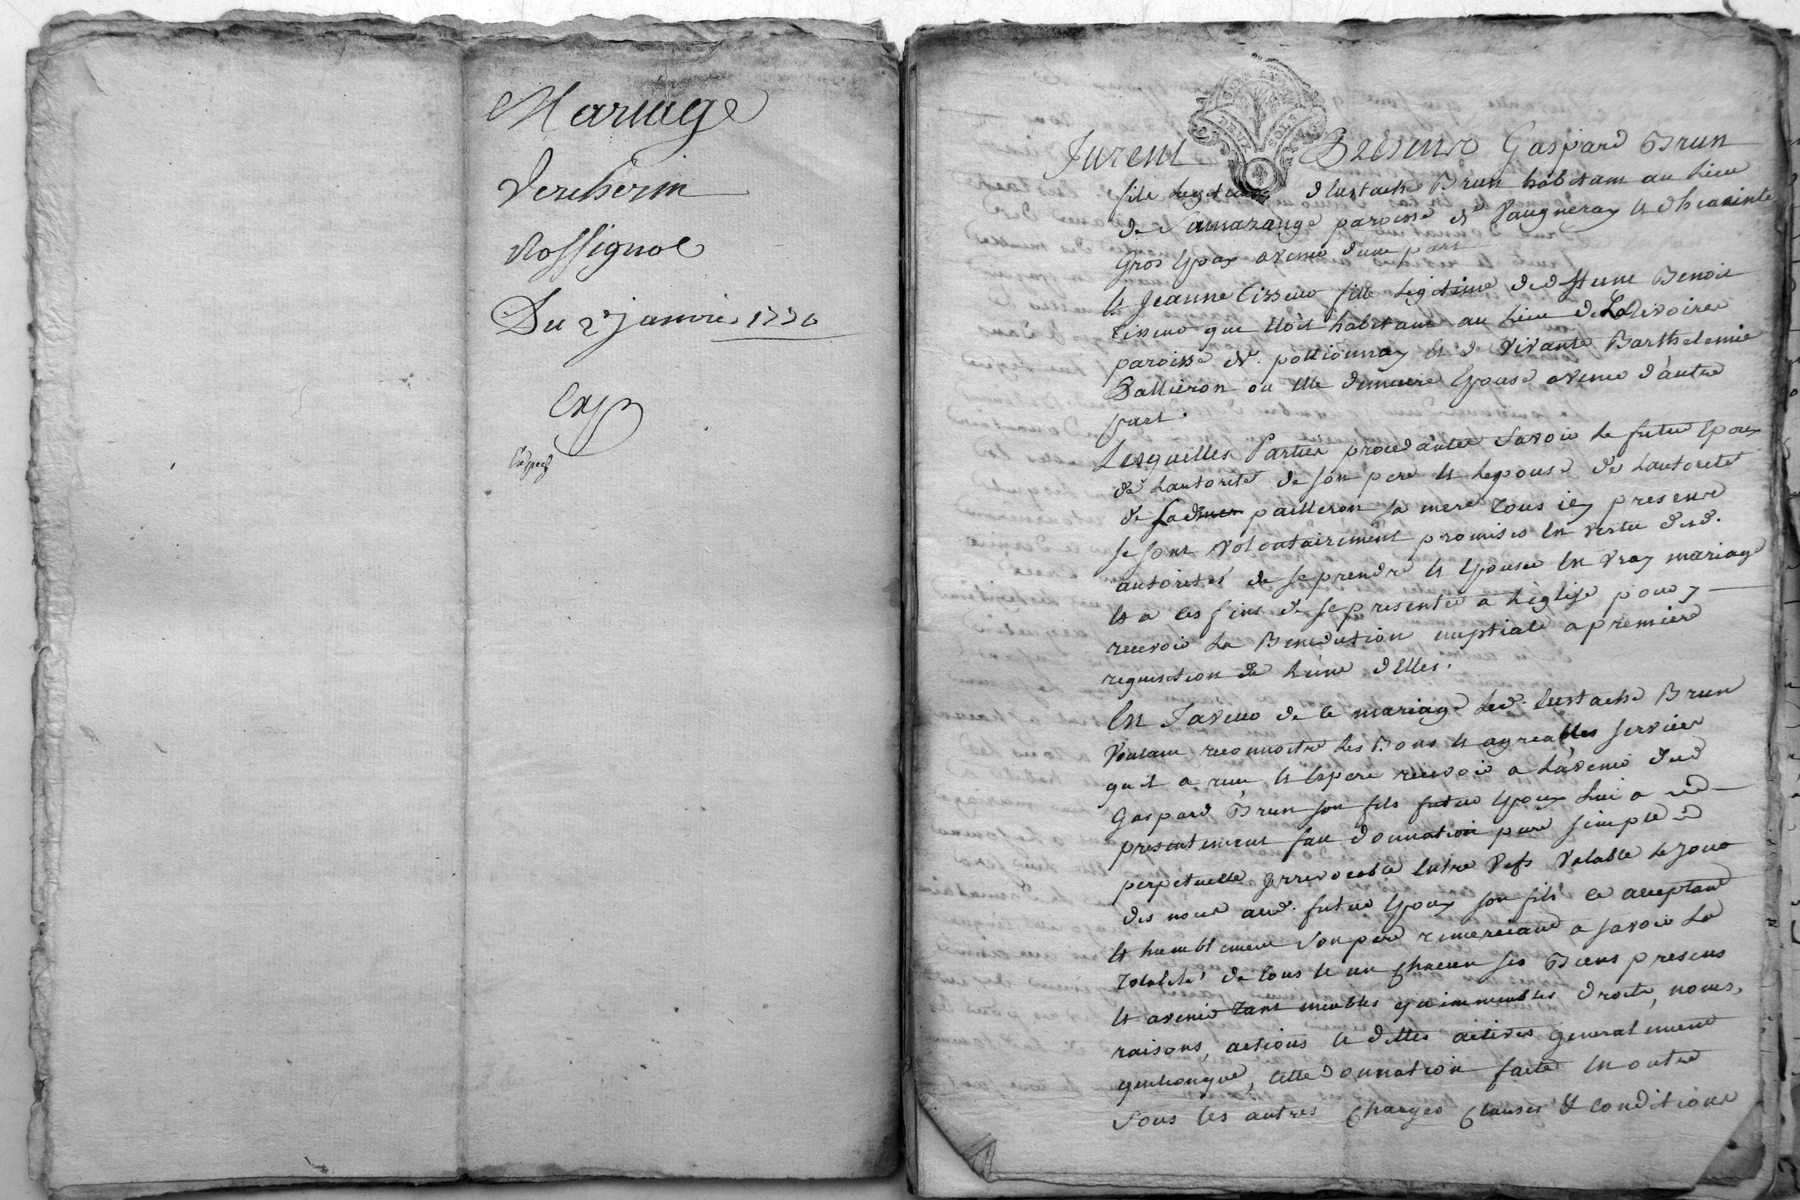 Mariage
Vercherin
Rossignol
Du 2e janvier 1770
Exp
Jurent Presence Gaspard Brun
fils legitime d'Eustache Brun habitant au lieu
de paroisse de Vaugneray et d'hiacinte
Gros Epoux avenir d'une part
Et Jeanne Tisseur fille Legitime de deffunt Benoit
Tisseur que étoit habitant au lieu de
paroisse de pollionnay et de vivante Barthelemie
Pallieron ou elle demeure Epouse avenir d'autre
part.
Lesquelles Parties procedantes savoir le futur Epoux
de Lautorité de son pere et Lepouse de Lautorité
de Ladite pailleron sa mere tous icy presens
se sont volontairement promises En vertu desd.
autorités de se prendre et Epouser En vray mariage
Et a ces fins de se presenter a Léglise pour y
recevoir La Benediction nuptiale a premiere
requisition de Lune d'Elles.
En faveur de ce mariage Led. Eustache Brun
voulant reconnoitre Les Bons et agreables services
qu'il a reçu et Espere recevoir a Lavenir dud
Gaspard Brun son fils futur Epoux Lui a
presentement fait donnation pure simple
perpetuelle yrrevocable Entre vifs valable
des aud. futur Epoux son fils ce acceptant
Et humblement son pere remerciant a savoir La
Totalité de tous et un chacun ses Biens presens
Et avenir tant meubles qu'immeubles droits, noms,
raisons, actions et dettes actives generalement
quelconque, cette donnation faite En outre
sous les autres charges clauses & conditions